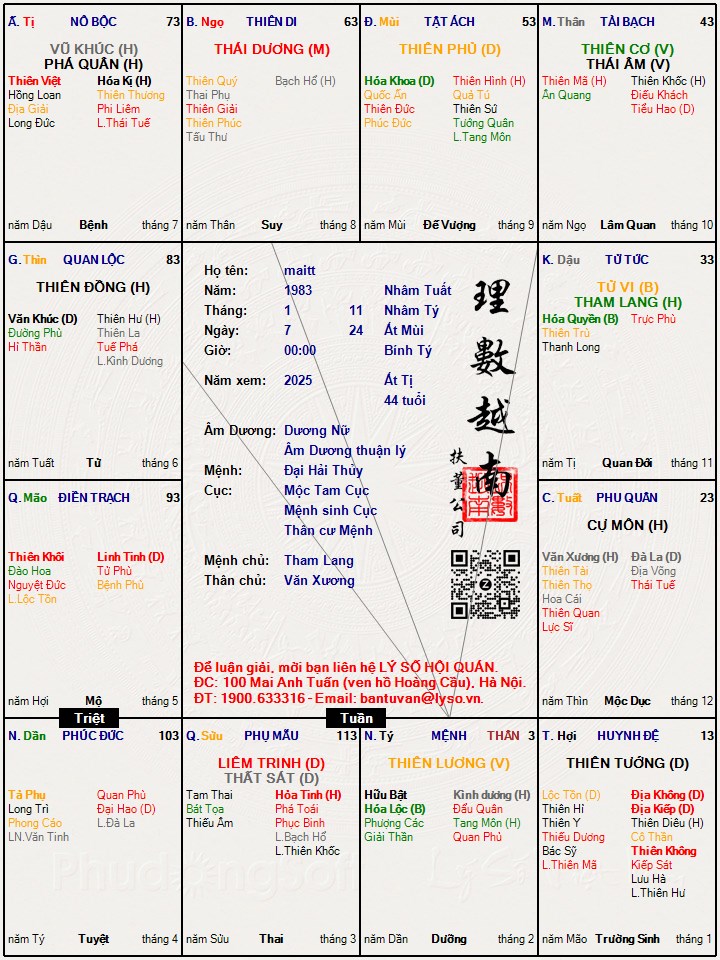 Ấ. Tị NÔ BỘC 73
VŨ KHÚC (H)
PHÁ QUÂN (H)
Thiên Việt Hóa Kị (H)
Hồng Loan Thiên Thương
Địa Giải Phi Liêm
Long Đức L.Thái Tuế
năm Dậu Bệnh tháng 7
B. Ngọ THIÊN DI 63
THÁI DƯƠNG (M)
Thiên Quý Bạch Hổ (H)
Thai Phụ
Thiên Giải
Thiên Phúc
Tấu Thư
năm Thân Suy tháng 8
Đ. Mùi TẬT ÁCH 53
THIÊN PHỦ (D)
Hóa Khoa (D) Thiên Hình (H)
Quốc Ấn Quả Tú
Thiên Đức Thiên Sứ
Phúc Đức Tướng Quân
L.Tang Môn
năm Mùi Đế Vượng tháng 9
M. Thân TÀI BẠCH 43
THIÊN CƠ (V)
THÁI ÂM (V)
Thiên Mã (H) Thiên Khốc (H)
Ân Quang Điếu Khách
Tiểu Hao (D)
năm Ngọ Lâm Quan tháng 10
G. Thìn QUAN LỘC 83
THIÊN ĐỒNG (H)
Văn Khúc (D) Thiên Hư (H)
Đường Phù Thiên La
Hỉ Thần Tuế Phá
L.Kình Dương
năm Tuất Tử tháng 6
Họ tên: maitt
Năm: 1983 Nhâm Tuất
Tháng: 1 11 Nhâm Tý
Ngày: 7 24 Ất Mùi
Giờ: 00:00 Bính Tý
Năm xem: 2025 Ất Tị
44 tuổi
Âm Dương: Dương Nữ
Âm Dương thuận lý
Mệnh: Đại Hải Thủy
Cục: Mộc Tam Cục
Mệnh sinh Cục
Thân cư Mệnh
Mệnh chủ: Tham Lang
Thân chủ: Văn Xương
理數越南
扶董公司
Để luận giải, mời bạn liên hệ LÝ SỐ HỘI QUÁN.
ĐC: 100 Mai Anh Tuấn (ven hồ Hoàng Cầu), Hà Nội.
ĐT: 1900.633316 - Email: bantuvan@lyso.vn.
K. Dậu TỬ TỨC 33
TỬ VI (B)
THAM LANG (H)
Hóa Quyền (B) Trực Phù
Thiên Trù
Thanh Long
năm Tị Quan Đới tháng 11
Q. Mão ĐIỀN TRẠCH 93
Thiên Khôi Linh Tinh (D)
Đào Hoa Tử Phù
Nguyệt Đức Bệnh Phù
L.Lộc Tồn
năm Hợi Mộ tháng 5
C. Tuất PHU QUÂN 23
CỰ MÔN (H)
Văn Xương (H) Đà La (D)
Thiên Tài Địa Võng
Thiên Thọ Thái Tuế
Hoa Cái
Thiên Quan
Lực Sĩ
năm Thìn Mộc Dục tháng 12
Triệt
Tuần
N. Dần PHÚC ĐỨC 103
Tả Phụ Quan Phù
Long Trì Đại Hao (D)
Phong Cáo L.Đà La
LN.Văn Tinh
năm Tý Tuyệt tháng 4
Q. Sửu PHỤ MẪU 113
LIÊM TRINH (D)
THẤT SÁT (D)
Tam Thai Hỏa Tinh (H)
Bát Tọa Phá Toái
Thiếu Âm Phục Binh
L.Bạch Hổ
L.Thiên Khốc
năm Sửu Thai tháng 3
N. Tý MỆNH THÂN 3
THIÊN LƯƠNG (V)
Hữu Bật Kình dương (H)
Hóa Lộc (B) Đẩu Quân
Phượng Các Tang Môn (H)
Giải Thần Quan Phủ
năm Dần Dưỡng tháng 2
T. Hợi HUYNH ĐỆ 13
THIÊN TƯỚNG (D)
Lộc Tồn (D) Địa Không (D)
Thiên Hỉ Địa Kiếp (D)
Thiên Y Thiên Diêu (H)
Thiếu Dương Cô Thần
Bác Sỹ Thiên Không
L.Thiên Mã Kiếp Sát
Lưu Hà
L.Thiên Hư
năm Mão Trường Sinh tháng 1